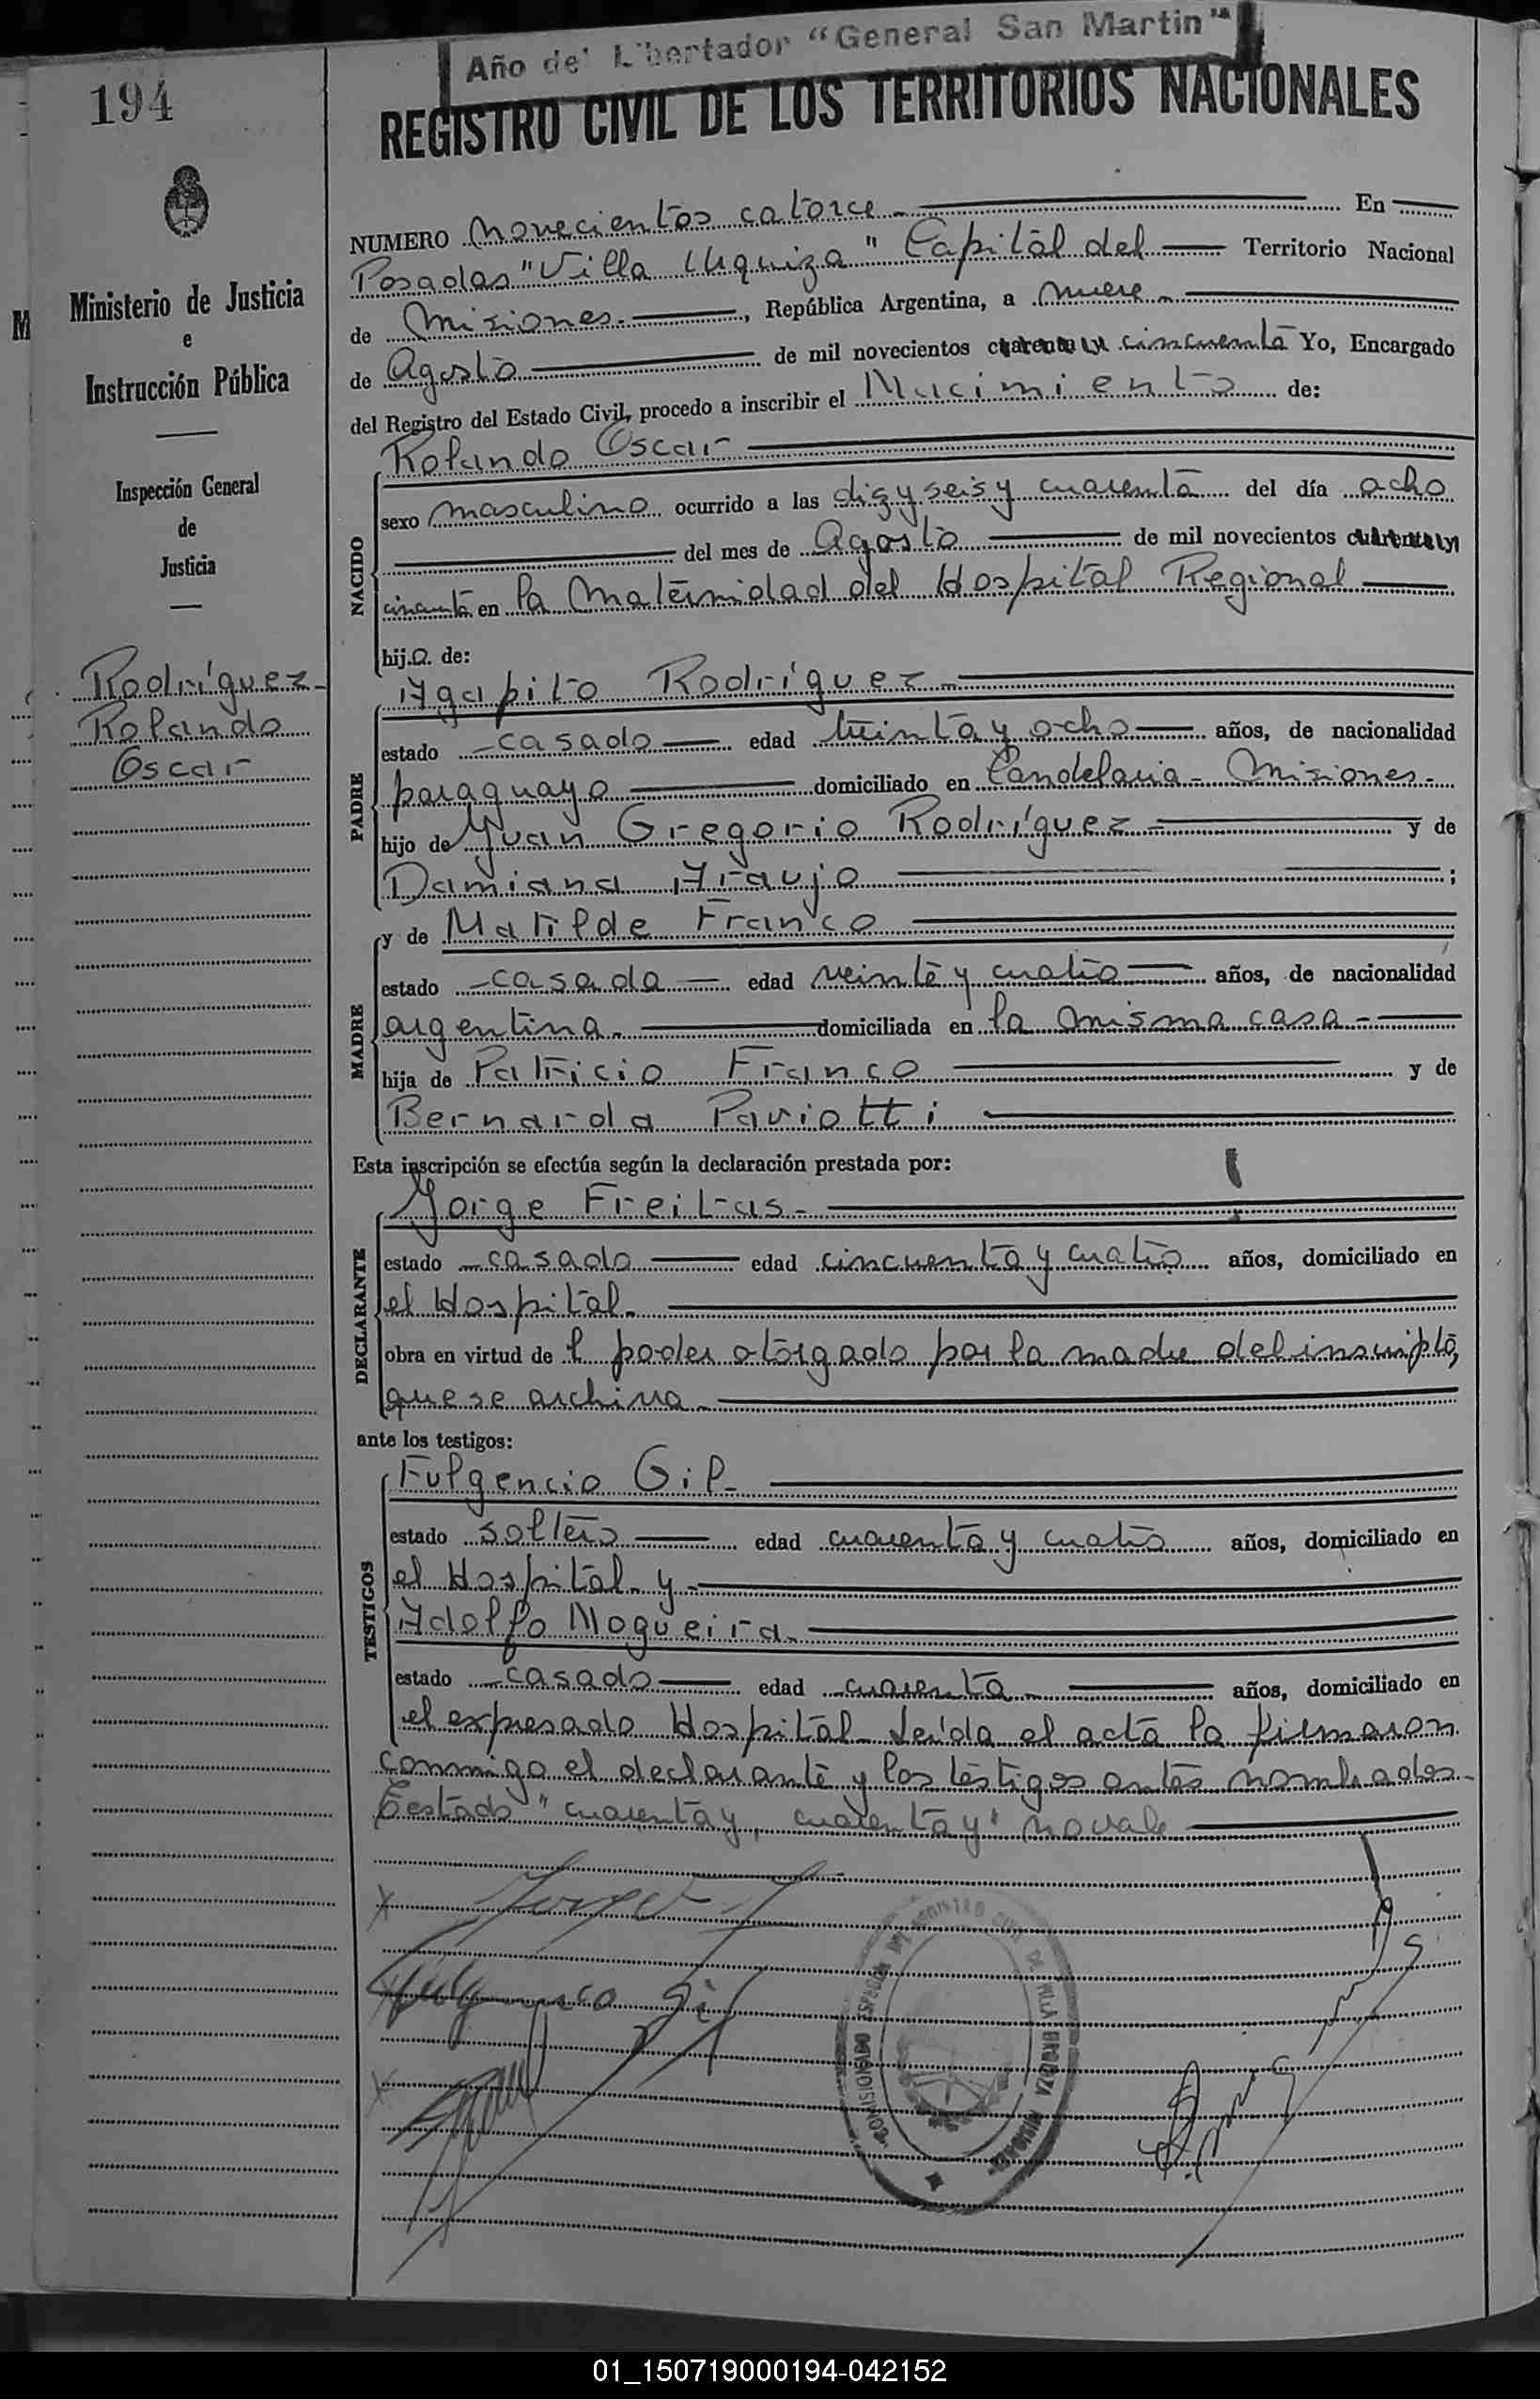 Año del Libertador "General San Martin"
194
REGISTRO CIVIL DE LOS TERRITORIOS NACIONALES
Ministerio de Justicia
e
Instrucción Pública
Inspección General
de
Justicia
Rodríguez
Rolando
Oscar
NUMERO novecientos catorce En
Posadas "Villa Urquiza" Capital del Territorio Nacional
de Misiones, República Argentina, a nueve
de Agosto de mil novecientos cuarenta y cincuenta Yo, Encargado
del Registro del Estado Civil, procedo a inscribir el Nacimiento de:
NACIDO
Rolando Oscar
sexo masculino ocurrido a las diez y seis y cuarenta del día ocho
del mes de Agosto de mil novecientos cuarenta y
cincuenta en la Maternidad del Hospital Regional
hij.o. de:
PADRE
Agapito Rodríguez
estado casado edad treinta y ocho años, de nacionalidad
paraguayo domiciliado en Candelaria - Misiones.
hijo de Juan Gregorio Rodríguez y de
Damiana Araujo ;
MADRE
y de Matilde Franco
estado casada edad veinte y cuatro años, de nacionalidad
argentina domiciliada en la misma casa
hija de Patricio Franco y de
Bernarda Paviotti
Esta inscripción se efectúa según la declaración prestada por:
DECLARANTE
Jorge Freitas
estado casado edad cincuenta y cuatro años, domiciliado en
el Hospital.
obra en virtud del poder otorgado por la madre del inscripto,
que se archiva
ante los testigos:
TESTIGOS
Fulgencio Gil
estado soltero edad cuarenta y cuatro años, domiciliado en
el Hospital y
Adolfo Nogueira
estado casado edad cuarenta años, domiciliado en
el expresado Hospital. Leída el acta la firmaron
conmigo el declarante y los testigos antes nombrados.
Testado "cuarenta y, cuarenta y" no vale
Jorge F
Fulgencio Gil
REGISTRO CIVIL DE VILLA URQUIZA
01_150719000194-042152